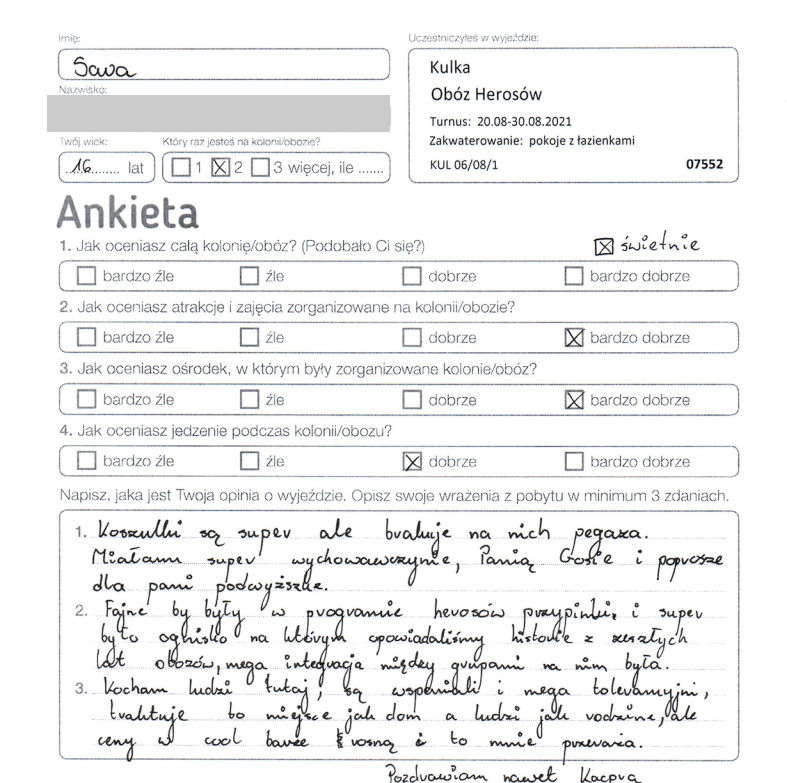 Imię:
Sawa
Nazwisko:
Twój wiek:
16 lat
Który raz jesteś na kolonii/obozie?
1 2 3 więcej, ile .......
Uczestniczyłeś w wyjeździe:
Kulka
Obóz Herosów
Turnus: 20.08-30.08.2021
Zakwaterowanie: pokoje z łazienkami
KUL 06/08/1 07552
Ankieta
1. Jak oceniasz całą kolonię/obóz? (Podobało Ci się?) świetnie
bardzo źle źle dobrze bardzo dobrze
2. Jak oceniasz atrakcje i zajęcia zorganizowane na kolonii/obozie?
bardzo źle źle dobrze bardzo dobrze
3. Jak oceniasz ośrodek, w którym były zorganizowane kolonie/obóz?
bardzo źle źle dobrze bardzo dobrze
4. Jak oceniasz jedzenie podczas kolonii/obozu?
bardzo źle źle dobrze bardzo dobrze
Napisz, jaka jest Twoja opinia o wyjeździe. Opisz swoje wrażenia z pobytu w minimum 3 zdaniach.
1. Koszulki są super ale brakuje na nich pegaza.
Miałam super wychowawczynie, Panią Gosie i poprosze
dla pani podwyższke.
2. Fajne by były w programie herosów przypinki, i super
było ognisko na którym opowiadaliśmy historie z zeszłych
lat obozów, mega integracja między grupami na nim była.
3. Kocham ludzi tutaj, są wspaniali i mega tolerancyjni,
traktuje to miejsce jak dom a ludzi jak rodzine, ale
ceny w cool barze rosną i to mnie przeraża.
Pozdrawiam nawet Kacpra